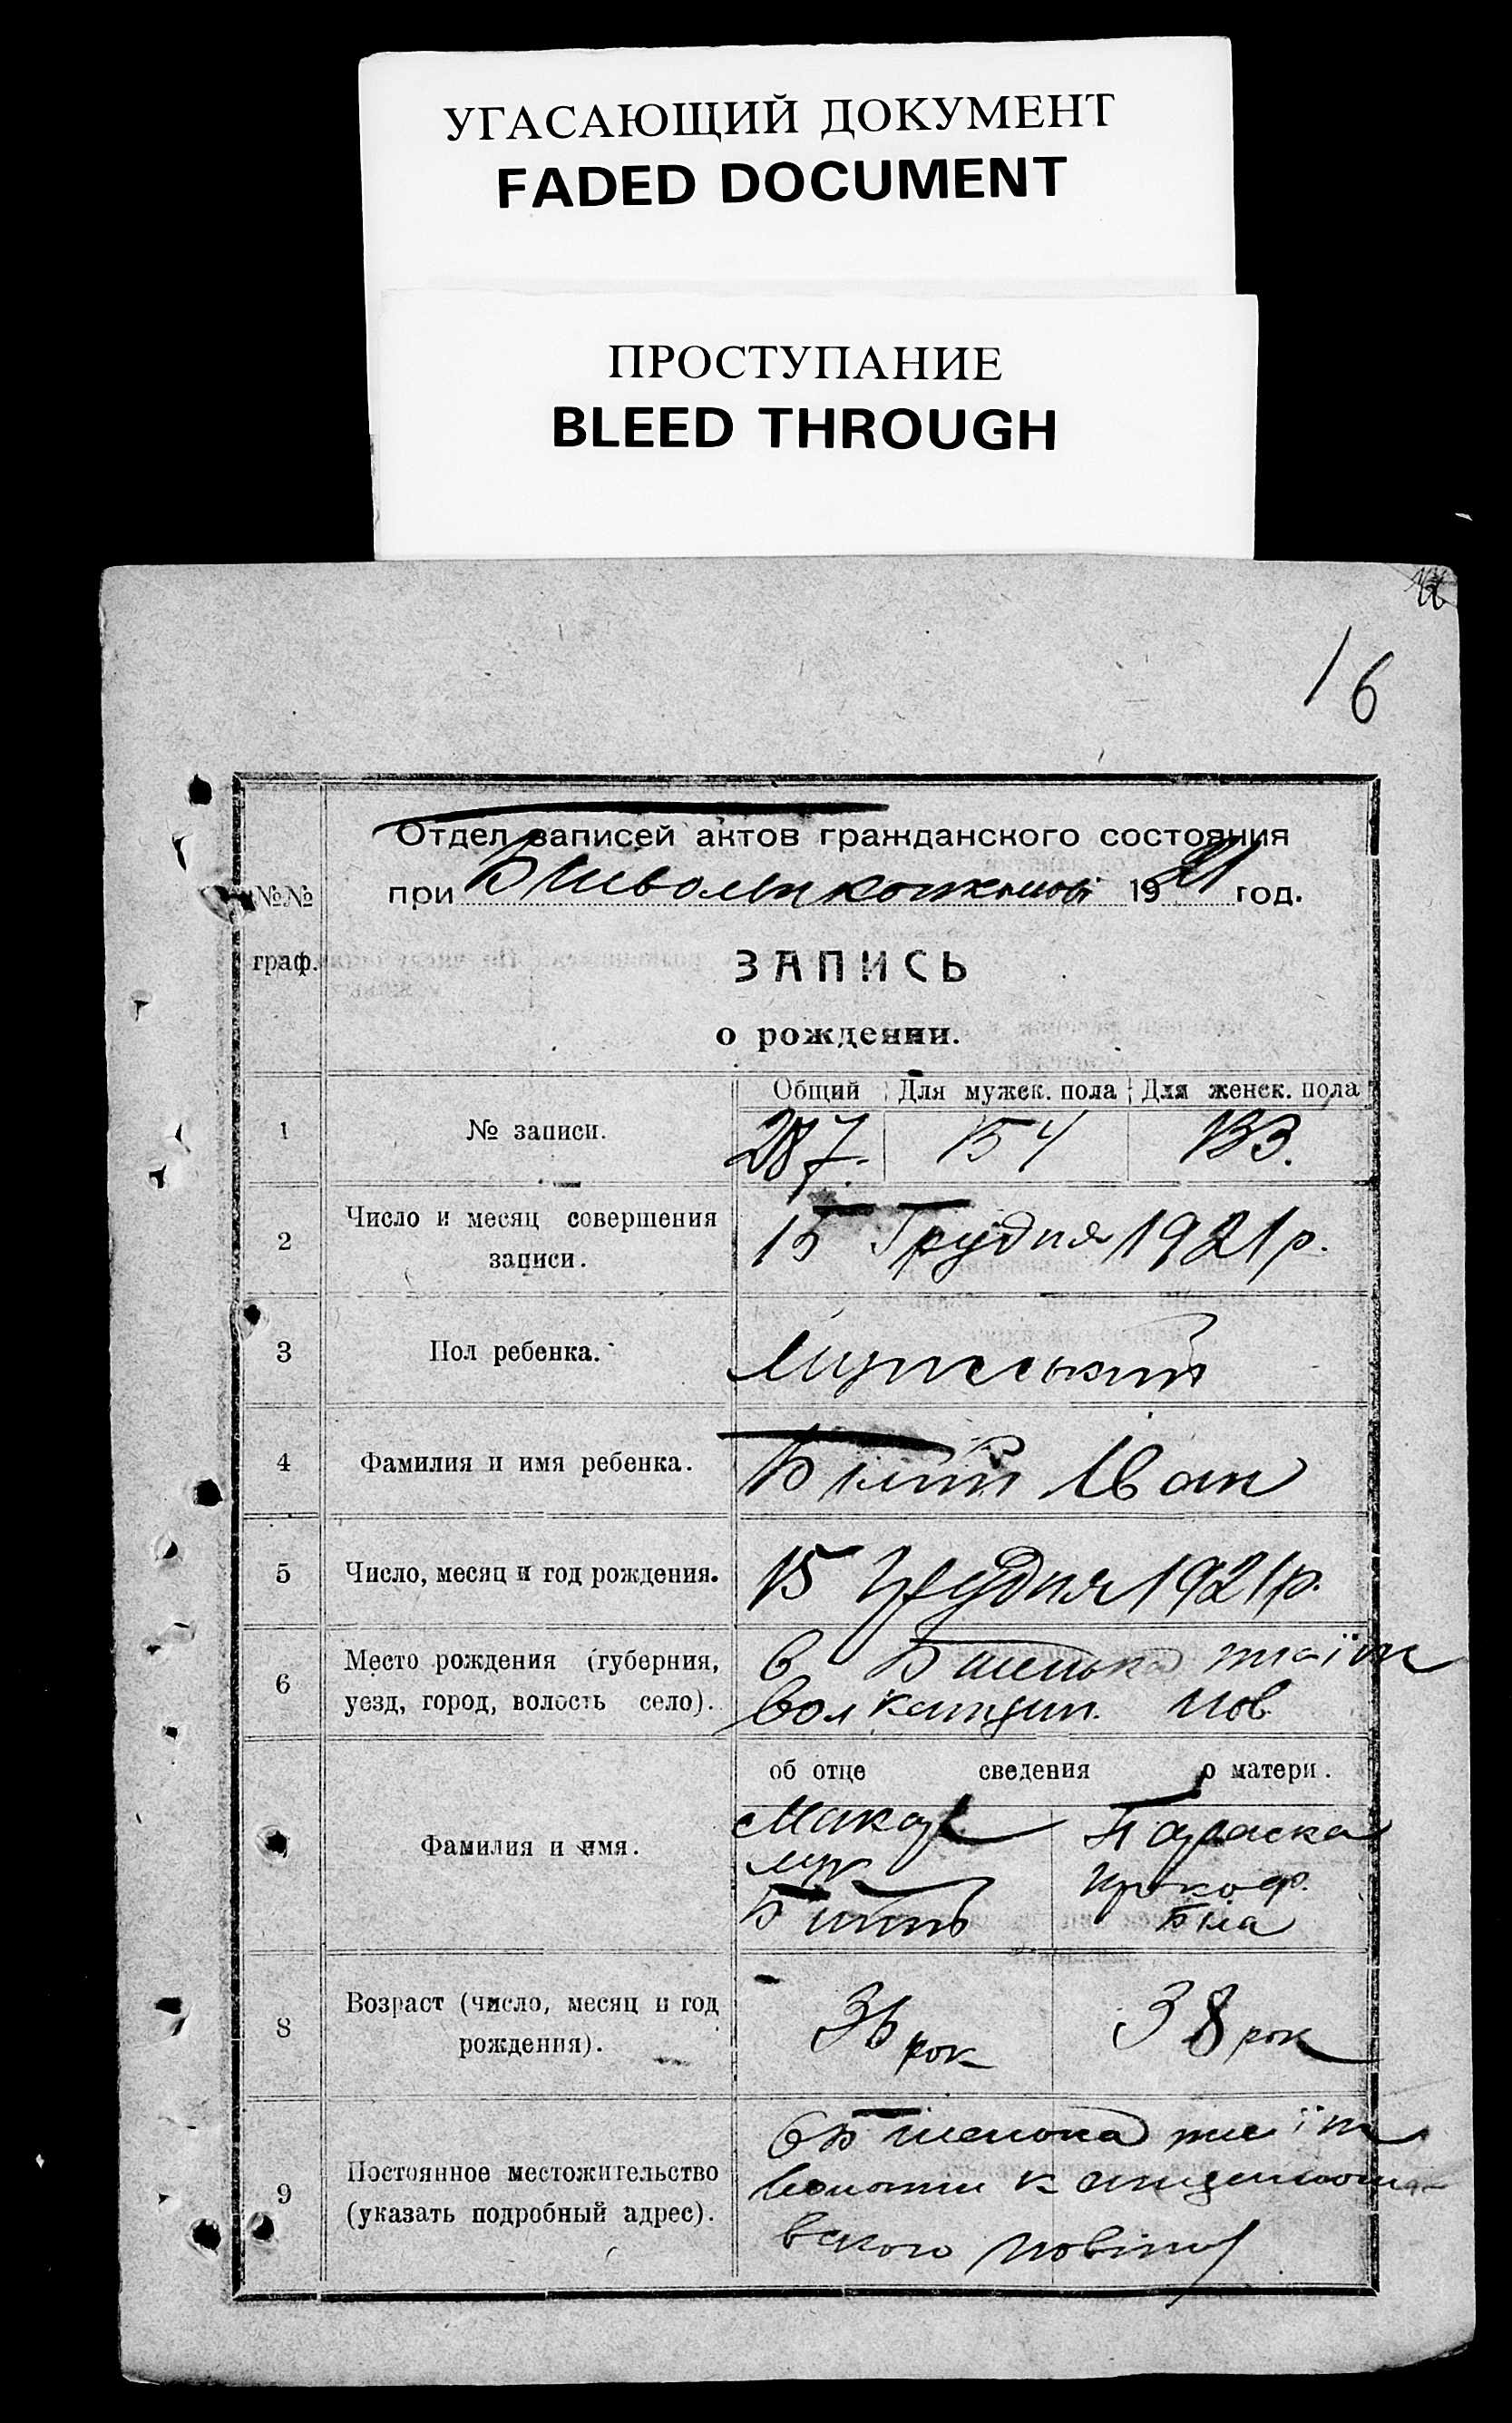 УГАСАЮЩИЙ ДОКУМЕНТ
FADED DOCUMENT
ПРОСТУПАНИЕ
BLEED THROUGH
16
Отдел записей актов гражданского состояния
при 1921 год.
№№
граф.
ЗАПИСЬ
о рождении.
Общий Для мужск. пола Для женск. пола
1 № записи. 287. 154 133.
2 Число и месяц совершения записи. 15 Грудня 1921 р.
3 Пол ребенка. Мужеський
4 Фамилия и имя ребенка. Білий Іван
5 Число, месяц и год рождения. 15 Грудня 1921 р.
6 Место рождения (губерния, в
уезд, город, волость село). вол пов.
об отце сведения о матери.
Макар Параска
Фамилия и имя. Прокоф.
Біла
8 Возраст (число, месяц и год рождения). рок 38 рок
9 Постоянное местожительство
(указать подробный адрес).
вского повіту